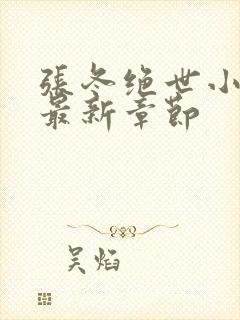 張冬绝世小
最新章節
吴焰